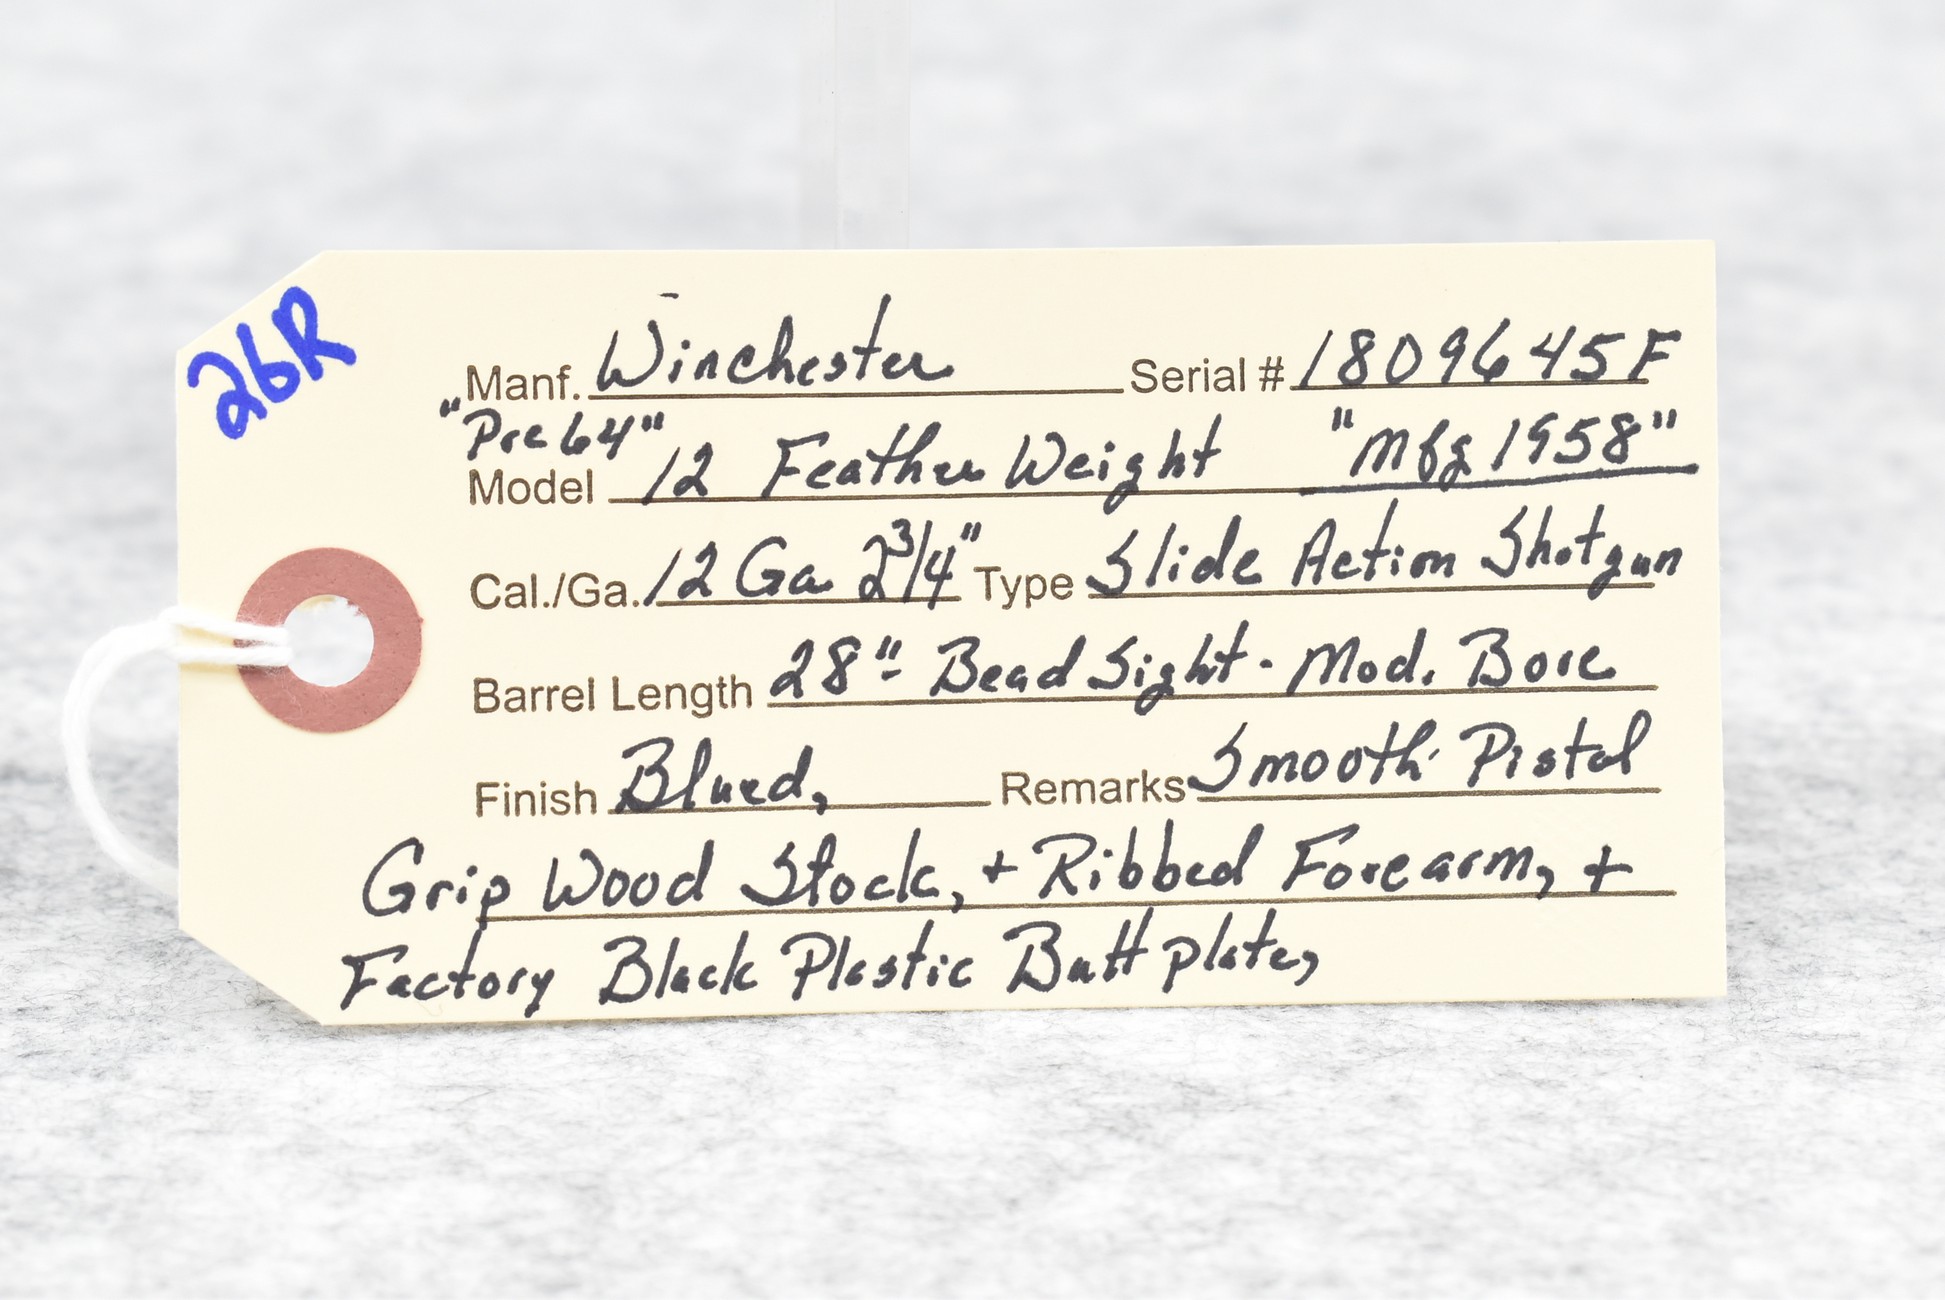 26R
Manf. Winchester Serial # 1809645F
"Pre 64"
Model 12 Feather Weight "Mfg 1958"
Cal./Ga. 12 Ga 2 3/4" Type Slide Action Shotgun
Barrel Length 28" - Bead Sight - Mod. Bore
Finish Blued, Remarks Smooth Pistol
Grip Wood Stock, + Ribbed Forearm, +
Factory Black Plastic Butt plate,